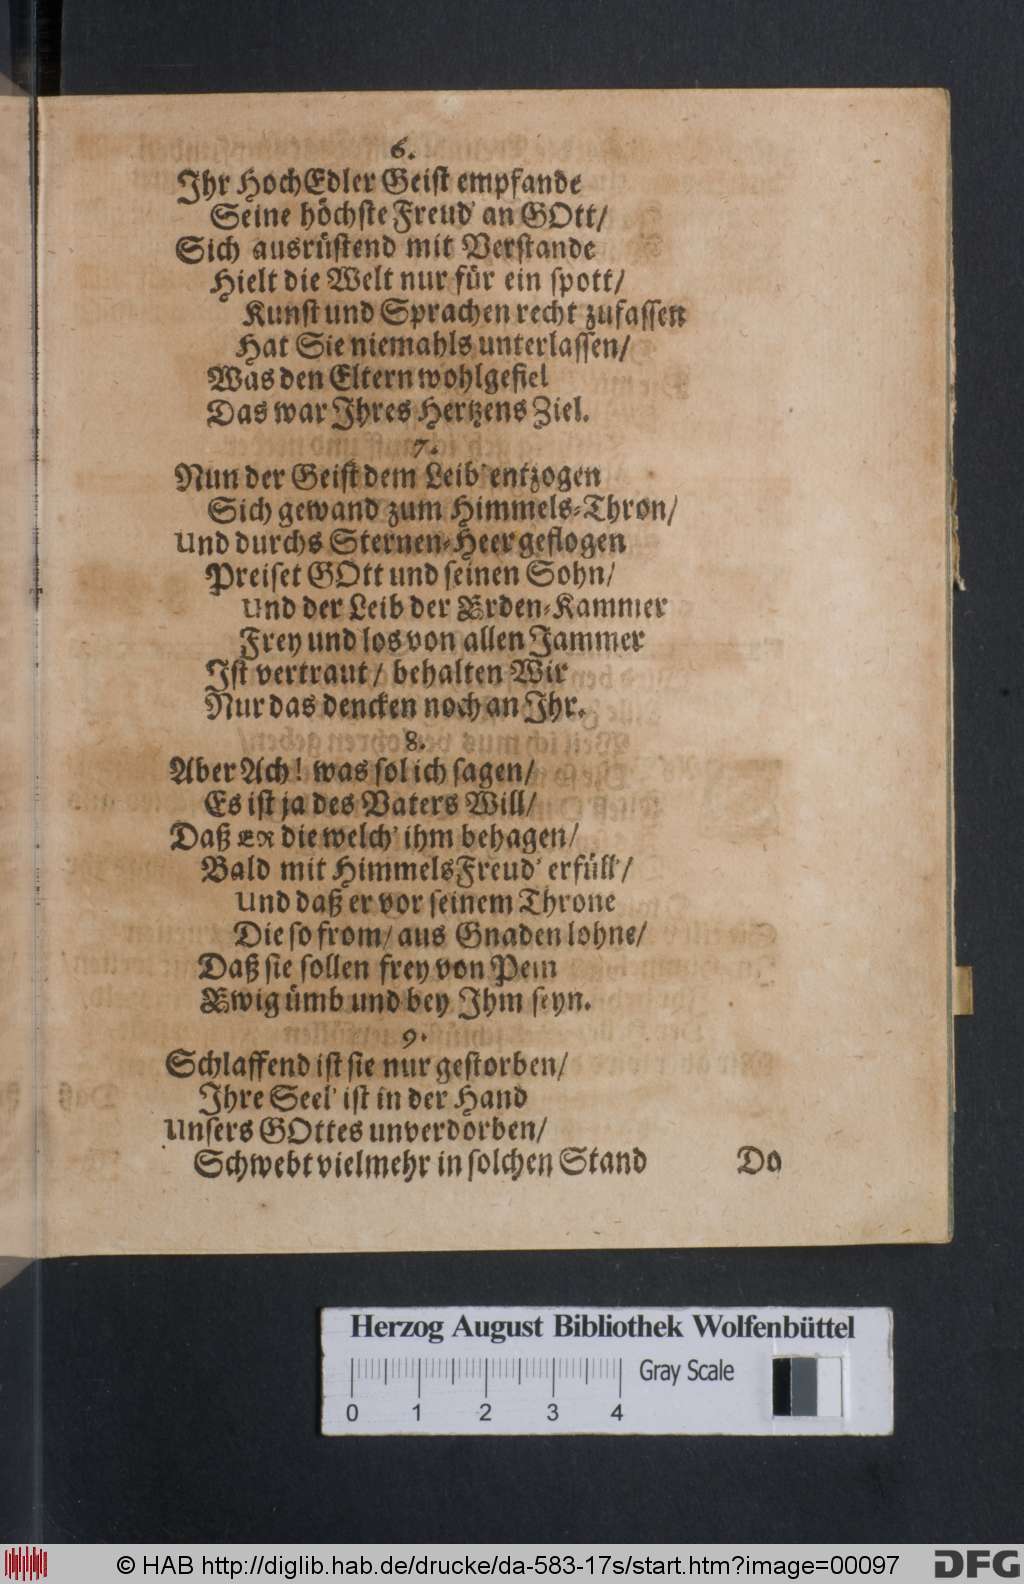 6.
Ihr HochEdler Geist empfande
Seine höchste Freud' an GOtt/
Sich ausrüstend mit Verstande
Hielt die Welt nur für ein spott/
Kunst und Sprachen recht zufassen
Hat Sie niemahls unterlassen/
Was den Eltern wohlgefiel
Das war Ihres Hertzens Ziel.
7.
Nun der Geist dem Leib' entzogen
Sich gewand zum Himmels-Thron/
Und durchs Sternen-Heer geflogen
Preiset GOtt und seinen Sohn/
Und der Leib der Erden-Kammer
Frey und los von allen Jammer
Ist vertraut/ behalten Wir
Nur das dencken noch an Ihr.
8.
Aber Ach! was sol ich sagen/
Es ist ja des Vaters Will/
Daß ER die welch' ihm behagen/
Bald mit HimmelsFreud' erfüll'/
Und daß er vor seinem Throne
Die so from/ aus Gnaden lohne/
Daß sie sollen frey von Pein
Ewig ümb und bey Ihm seyn.
9.
Schlaffend ist sie nur gestorben/
Ihre Seel' ist in der Hand
Unsers GOttes unverdorben/
Schwebt vielmehr in solchen Stand
Da
Herzog August Bibliothek Wolfenbüttel
Gray Scale
0 1 2 3 4
© HAB http://diglib.hab.de/drucke/da-583-17s/start.htm?image=00097
DFG